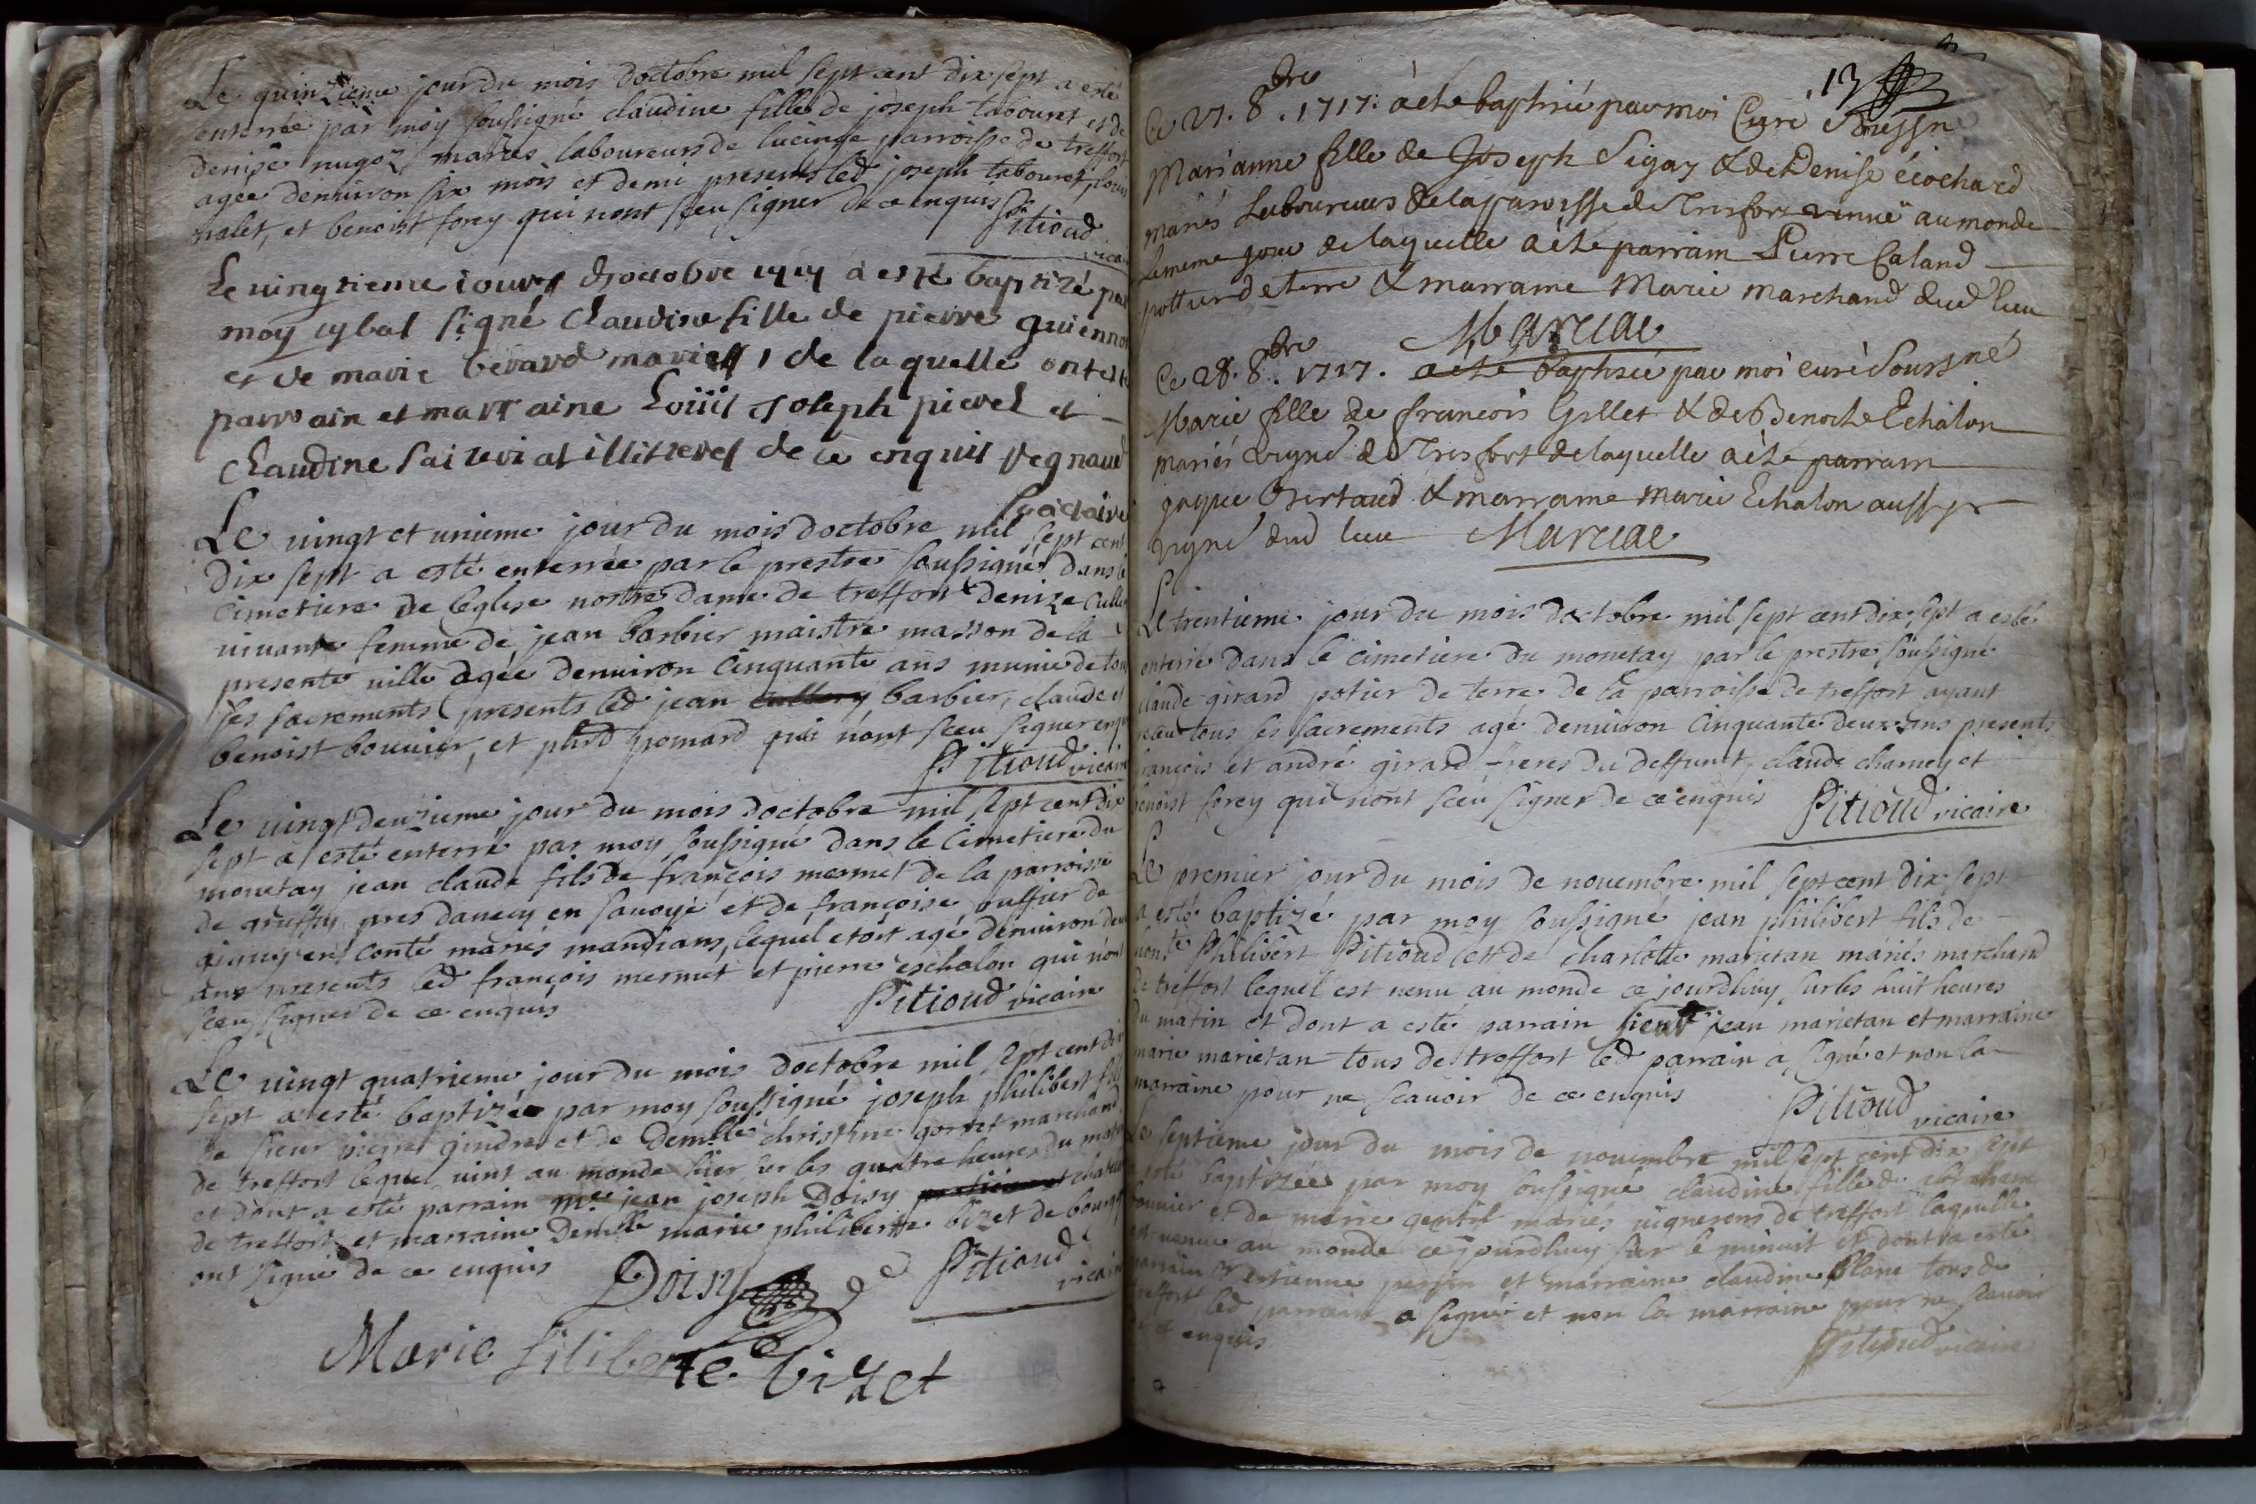 Le quinzieme jour du mois doctobre mil sept cent dix sept a esté
enterrée par moy soussigné claudine fille de joseph tabouret et de
denise mugoz mariés laboureurs de lucinge parroisse de treffort
agée denuiron six mois et demi presents led joseph tabouret,
nalet, et benoist forey qui nont sceu signer de ce enquis
Pitioud
vicaire
Le uingtieme iour doctobre 1717 a esté baptizé par
moy signé Claudine fille de pierre guiennon
et de marie berard maries de laquelle ont esté
parrain et marraine Loüis Joseph pierel et
Claudine illiteres de ce enquis Regnaud
Le uingt et unieme jour du mois doctobre mil sept cent
dix sept a esté enterrée par le prestre soussigné dans le
cimetiere de leglise nostre dame de treffort denize
uiuante femme de jean barbier maistre masson de la
presente uille agée denuiron cinquante ans munie de tous
ses sacrements presents led jean barbier, claude et
benoist bouuier, et phird pomard qui nont sceu signer enquis
Pitioud vicaire
Le uingt deuzieme jour du mois doctobre mil sept cent dix
sept a esté enterré par moy soussigné dans le cimetiere du
monetay jean claude fils de françois mermet de la parroisse
de gruffy pres danecy en sauoye et de françoise de
en conté mariés mandians, lequel etoit agé denuiron deux
ans presents led françois mermet et pierre eschalon qui nont
sceu signer de ce enquis
Pitioud vicaire
Le uingt quatrieme jour du mois doctobre mil sept cent dix
sept a esté baptizé par moy soussigné joseph philibert fils
de sieur pierre gindre et de Demlle christine gorret marchand
de treffort lequel uint au monde hier sur les quatre heures du matin
et dont a esté parrain me jean joseph Doisy
de treffort et marraine Demlle marie philiberte bizet de bourg
ont signé de ce enquis
Doisy
Pitioud
vicaire
Marie filiberte bizet
13
Ce 27. 8bre. 1717. à ete baptisée par moi Curé
Marianne fille de Joseph Sigay & de Denise écochard
mariés Laboureurs de la paroisse de Tresfort venuë au monde
le meme jour de laquelle a été parrain Pierre Caland
pottier de terre & marraine Marie marchand dud lieu
Marciac
Ce 28. 8bre. 1717. a ete baptisée par moi curé soussné
Marie fille de francois Gillet & de Benoite Echalon
mariés vigns de Tresfort de laquelle a été parrain
jaque Bertaud & marraine marie Echalon aussy
vigns dud lieu Marciac
Le trentieme jour du mois doctobre mil sept cent dix sept a esté
enterré dans le cimetiere du monetay par le prestre soussigné
claude girard potier de terre de la parroisse de treffort ayant
receu tous ses sacrements agé denuiron cinquante deux ans presents
françois et andré girard freres du deffunt, claude chamey et
benoist forey qui nont sceu signer de ce enquis Pitioud vicaire
Le premier jour du mois de nouembre mil sept cent dix sept
a esté baptizé par moy soussigné jean philibert fils de
Philibert Pitioud et de charlotte marietan mariés marchand
de treffort lequel est uenu au monde ce jourdhuy sur les huit heures
du matin et dont a esté parrain sieur jean marietan et marraine
marie marietan tous de treffort led parrain a signé et non la
marraine pour ne scauoir de ce enquis
Pitioud
vicaire
Le septieme jour du mois de nouembre mil sept cent dix sept
a esté baptizée par moy soussigné claudine fille de abraham
bouuier et de marie gentil mariés uignerons de treffort laquelle
est uenue au monde ce jourdhuy sur le minuit et dont a esté
parrain estienne et marraine claudine blanc tous de
treffort led parrain a signé et non la marraine pour ne scauoir
de ce enquis
Pitioud vicaire